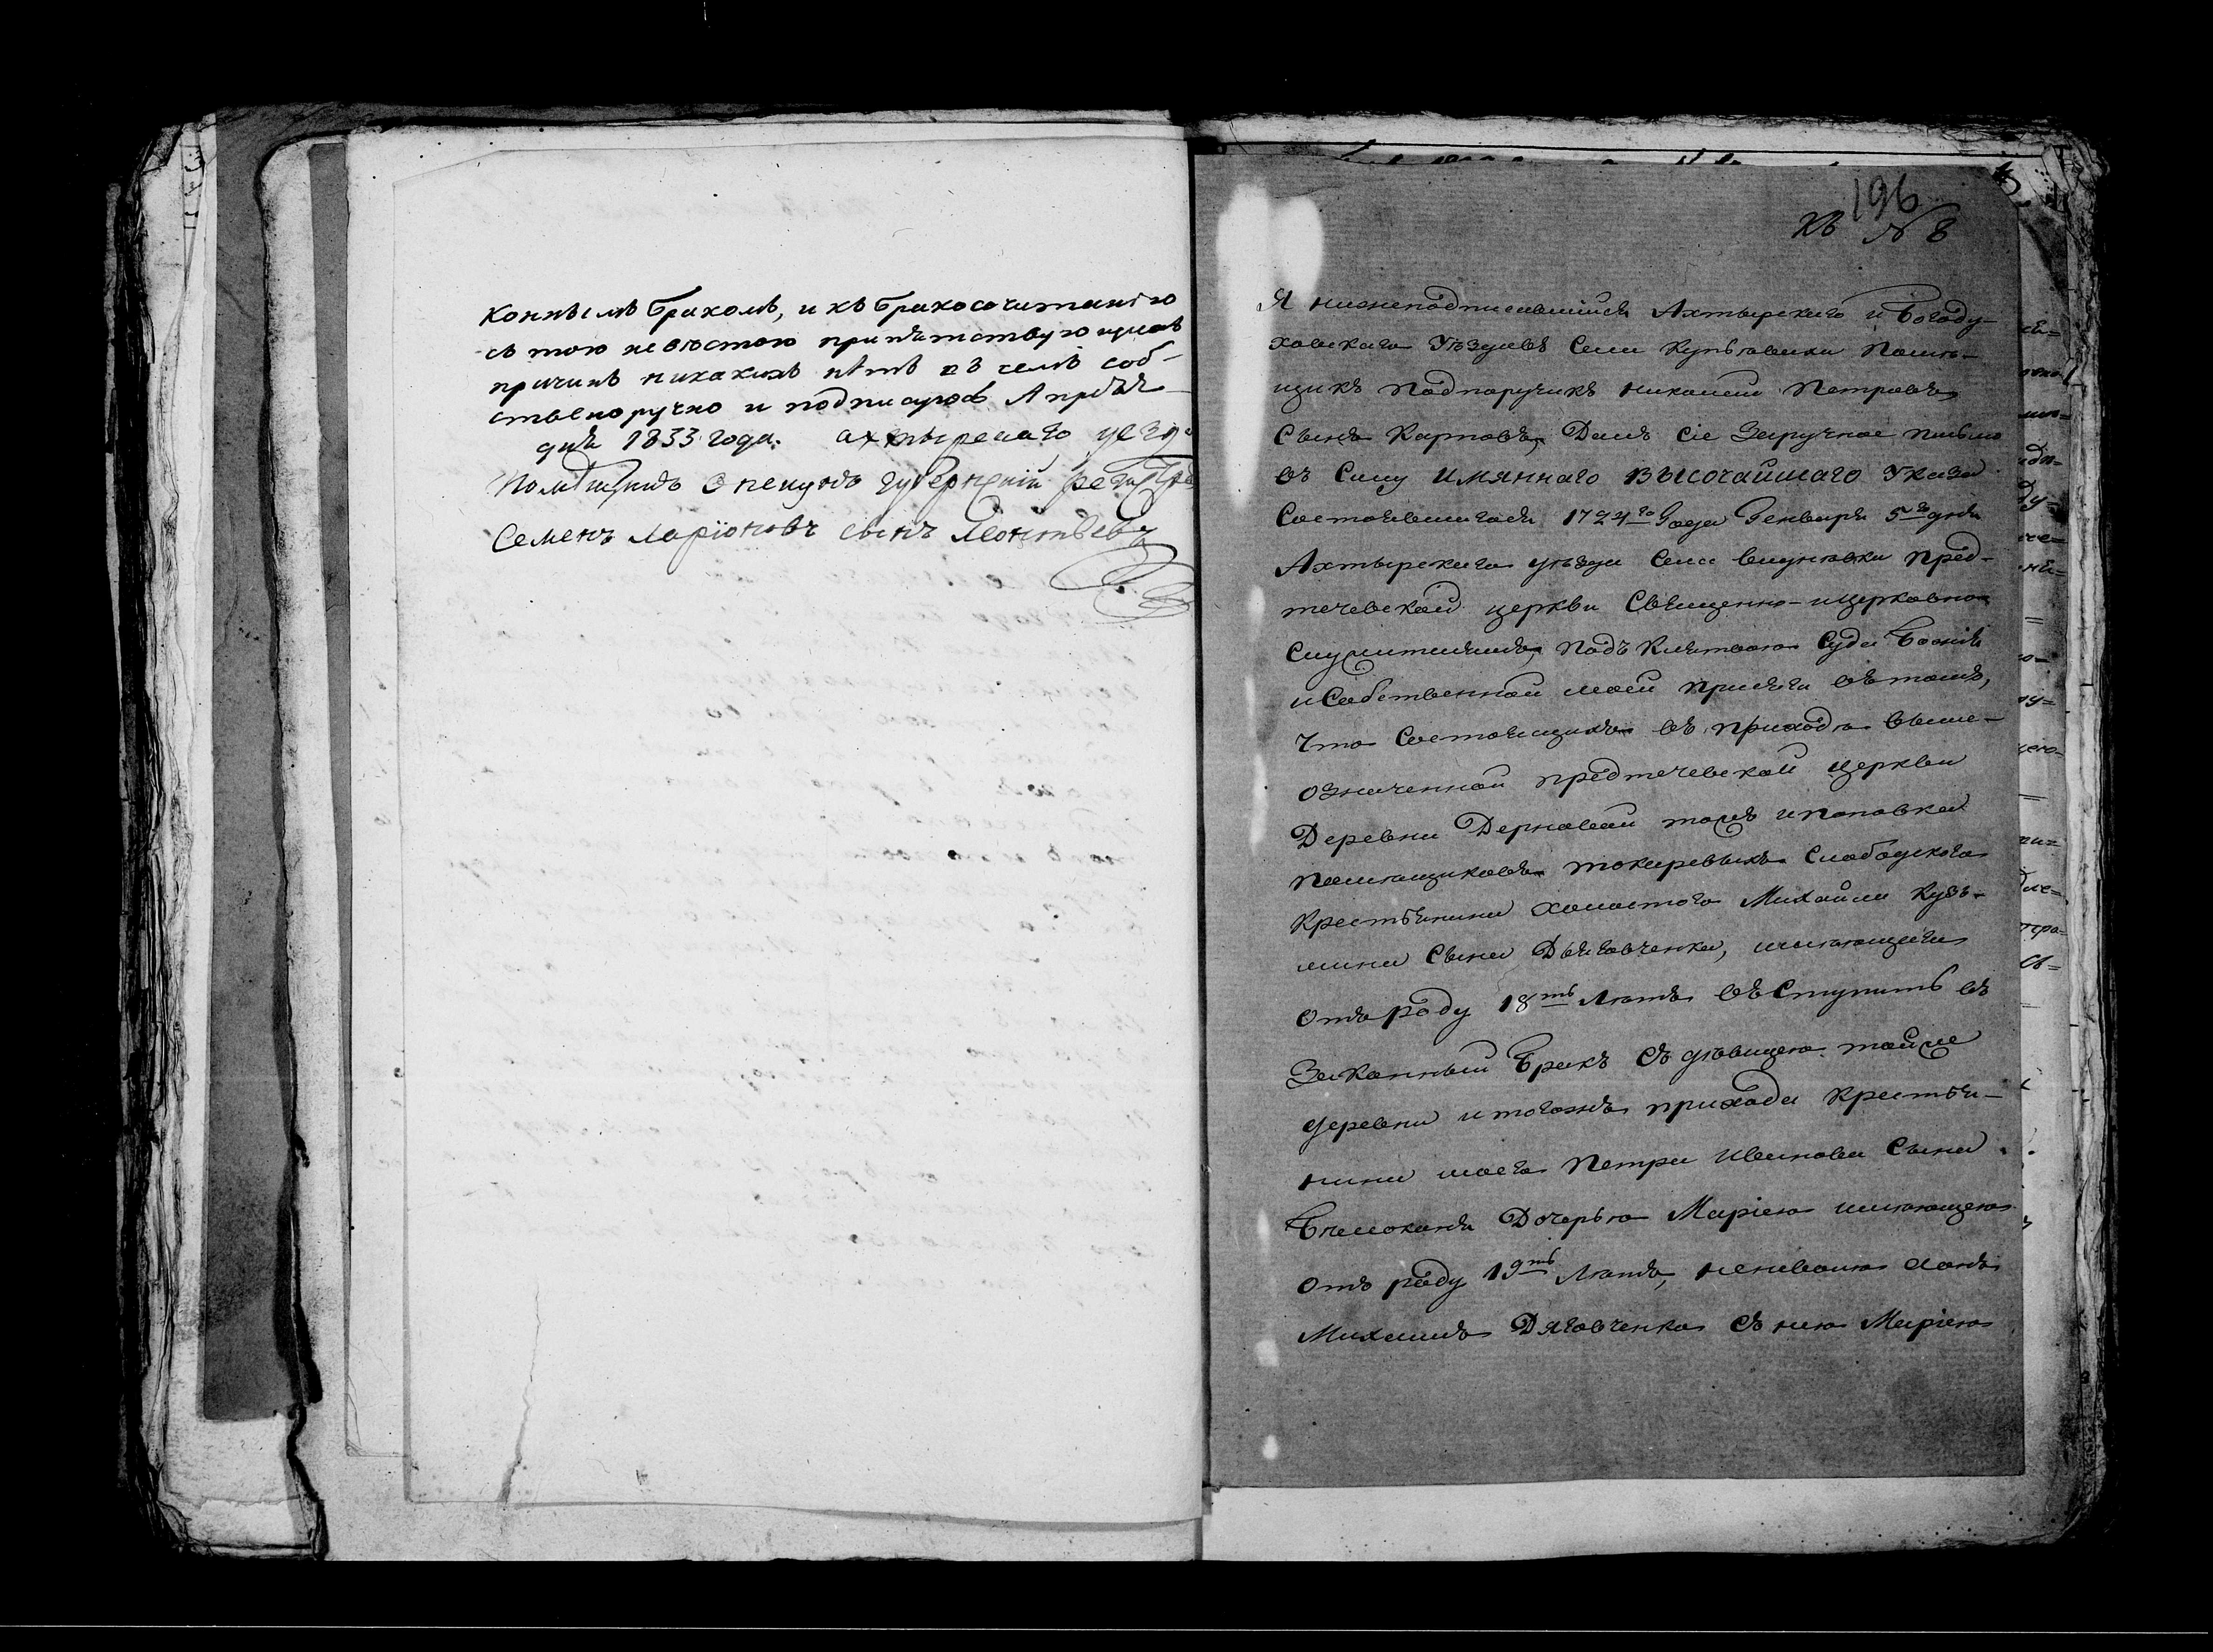 коннымъ бракомъ, и къ бракосочитанію
съ тою невѣстою припятствующихъ
причинъ никакихъ нѣтъ въ чемъ соб-
ственоручно и подписуюсь Апрѣля
дня 1833 года. ахтырскаго уезда
Помѣщикъ Опекунъ губернскій
Семенъ Ларіоновъ сынъ Леонтьевъ
196
Къ № 8
Я нижеподписавшійся Ахтырскаго и Богоду-
ховскаго Уѣздовъ Села Купьеваки Помѣ-
щикъ Подпоручикъ Николай Петровъ
Сынъ Карповъ, Далъ сіе Заручное письмо
въ Силу Имяннаго Высочайшаго Указа
Состоявшагося 1724го Года Генваря 5го дня
Ахтырскаго уѣзда Села Пред-
течевской церкви Священно-ицерковно
Служителямъ, подъ Клятвою Суда Божія
и Собственной моей присяги въ томъ,
Что Состоящихъ въ приходѣ выше-
означенной предтечевской церкви
Деревни Дерновой тожъ ипоповка
помѣщиковъ токаревыхъ Слободскаго
Крестьянина холостого Михаила Кузь-
мина Сына Дяговченка, имѣющаго
Отъ роду 18ть Лѣтъ въСтупить въ
Законный Бракъ Съ дѣвицею тойже
деревни и тогожъ прихода Крестья-
нина моего Петра Иванова Сына
Дочерью Маріею имѣющею
Отъ роду 19ть Лѣтъ,
Михаилъ Дяговченко Съ нею Маріею